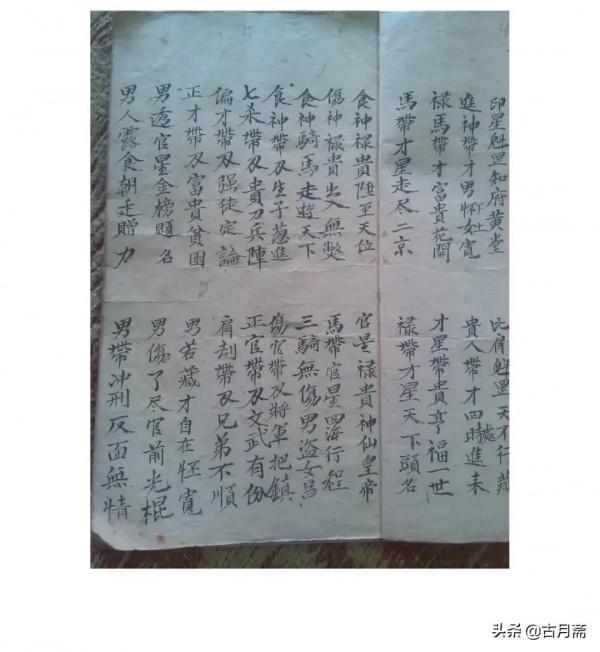 4
印星魁罡知府黄堂 比肩魁罡天不行藏
進神帶才男怀女寬 貴人帶才四時處進未
禄馬帶才富貴花開 才星帶貴亨福一世
馬帶才星走尽二京 禄帶才星天下頭名
5
食神禄貴陞至天位 官星禄貴神仙皇帝
傷神禄貴出入無獘 馬帶官星四海行程
食神騎馬走遊天下 三騎無傷男盗女昌
食神帶刄生子蔥進 傷官帶刄將軍把鎮
七杀帶刄貴刀兵陣 正官帶刄文武有份
偏才帶刄强徒定論 肩刦帶刄兄弟不順
正才帶刄富貴貧困 男若藏才自在寬
男透官星金榜題名 男傷了尽官前光棍
男人露食朝走贈力 男帶冲刑反面無情
头条 @古月斋